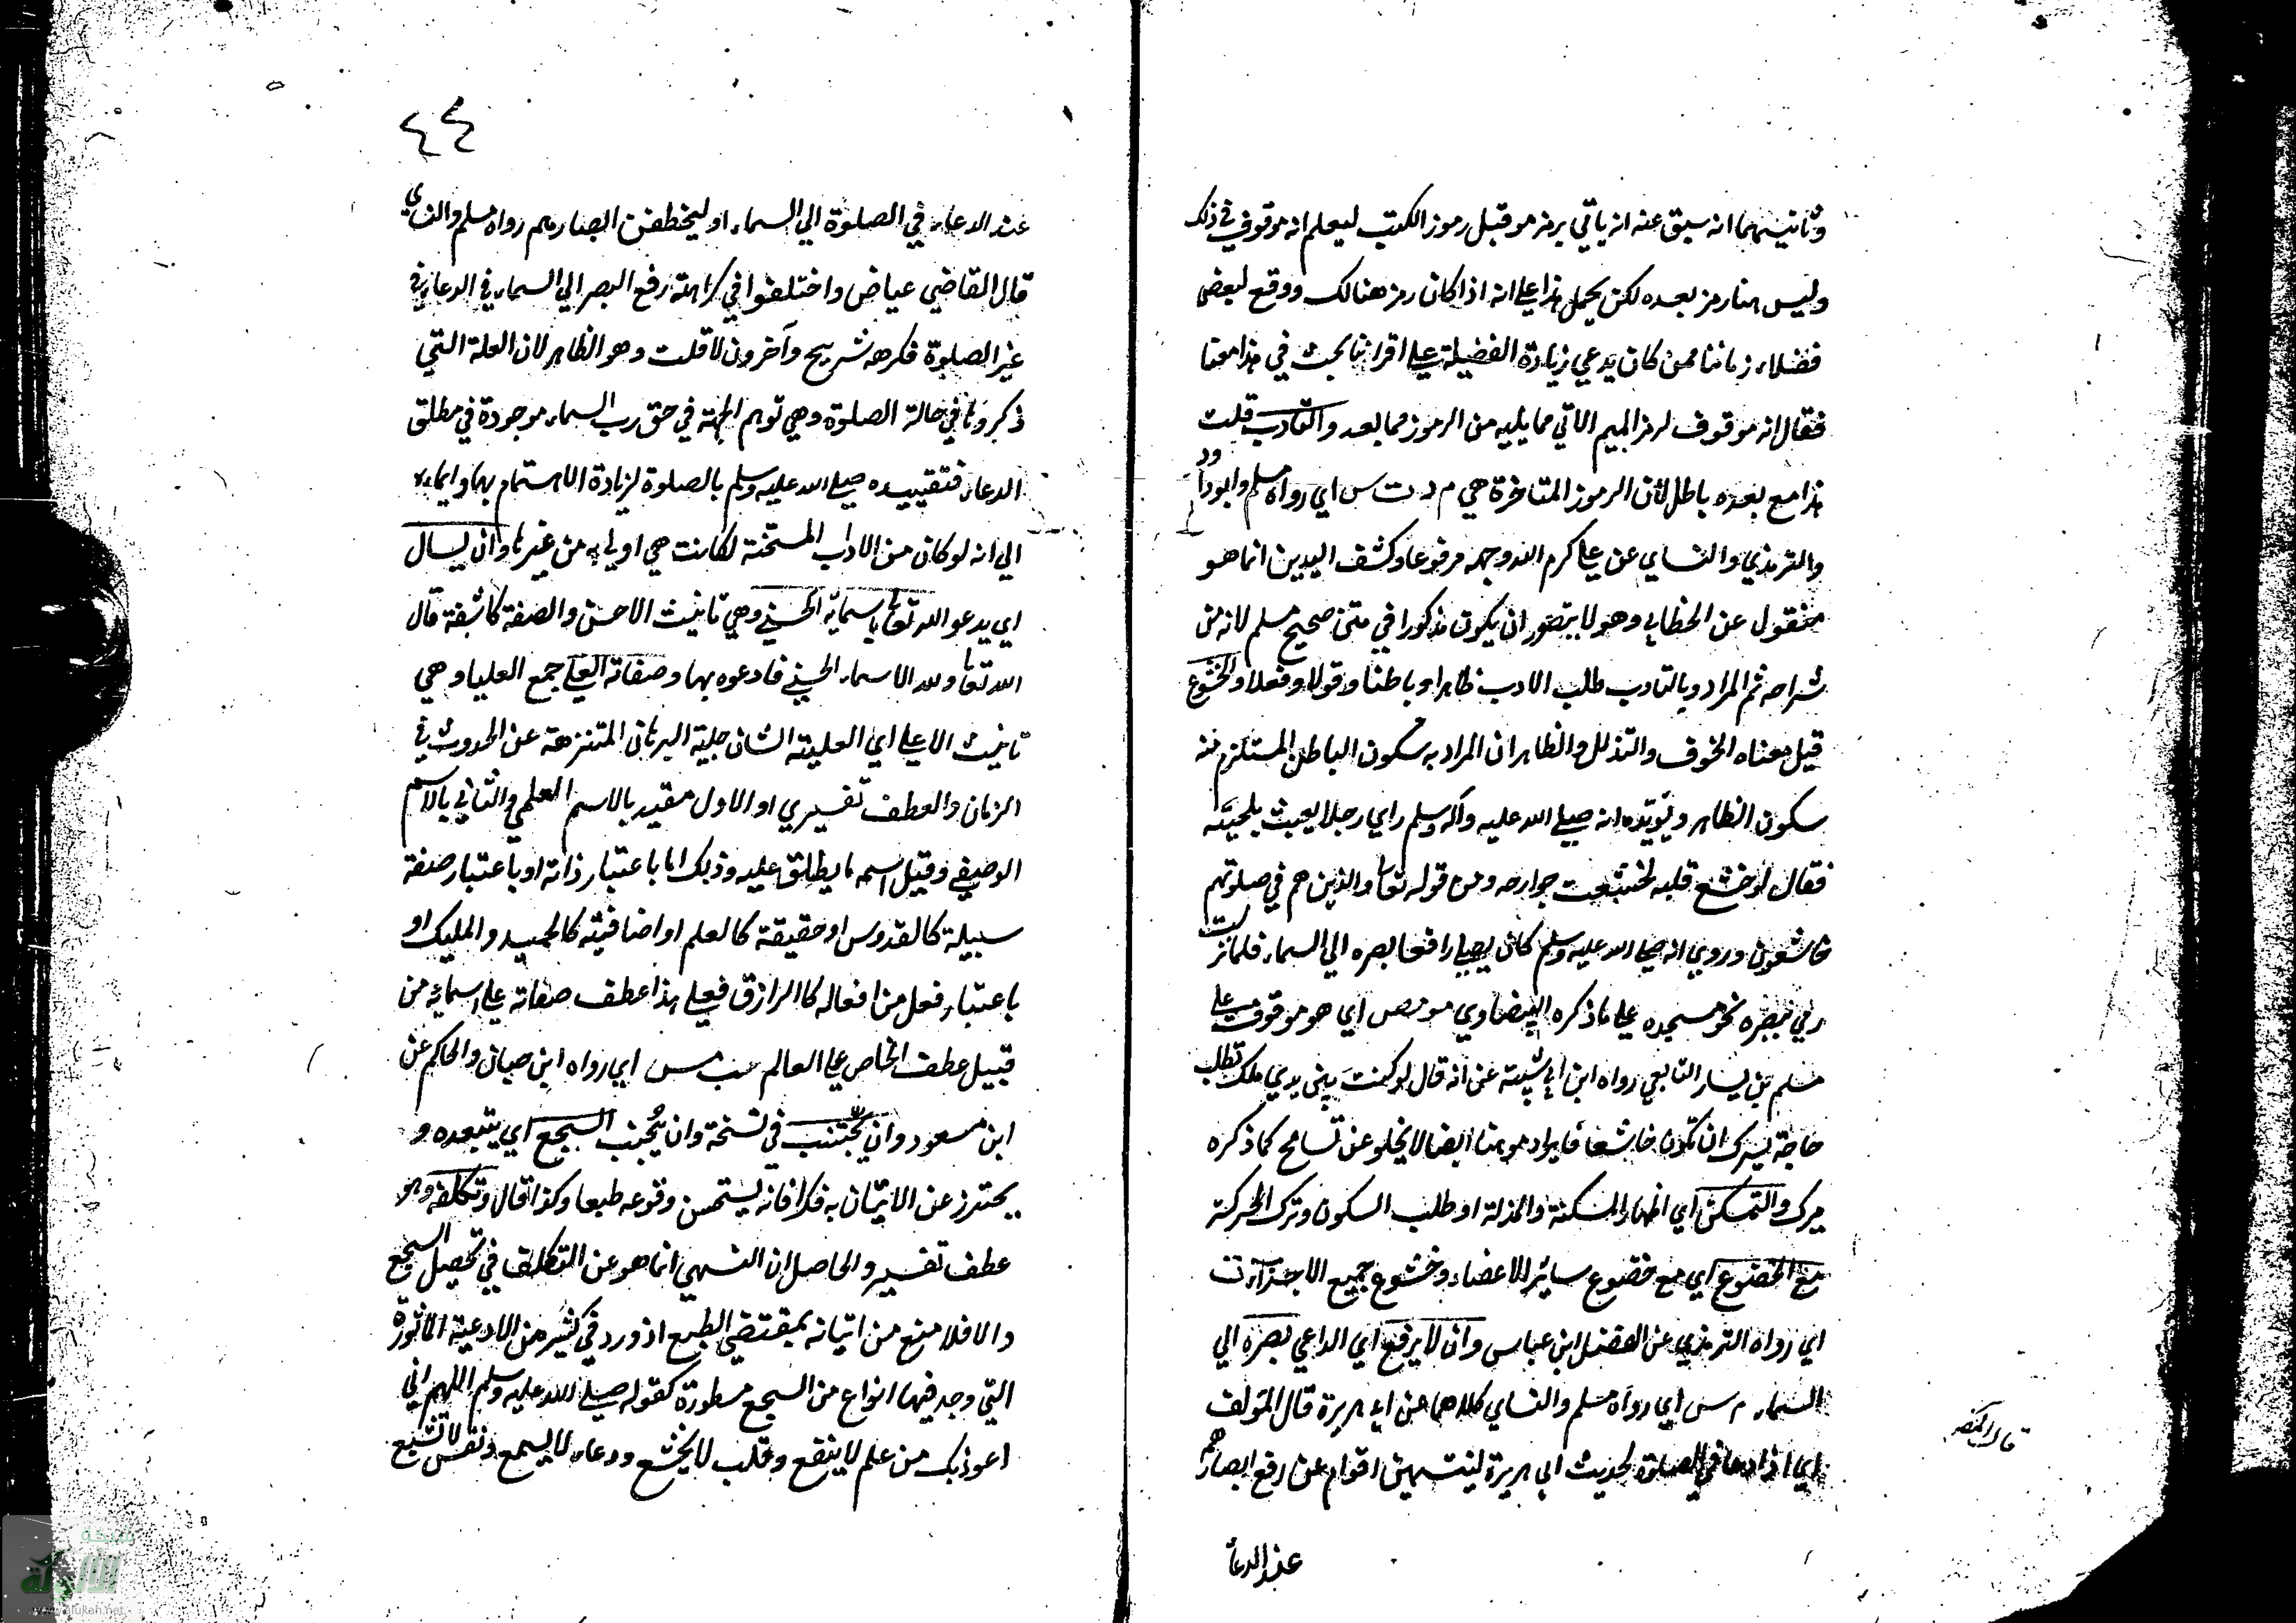 وثانيهما انه سبق عنه انه ياتي برمز مو قبل رموز الكتب ليعلم انه موقوف في ذلك
وليس هنا رمز بعده لكن يحمل هذا علي انه اذا كان رمز هنالك ووقع لبعض
فضلاء زماننا ممن كان يدعي زيادة الفضيلة علي اقراننا بحث في هذا معنا
فقال انه موقوف لرمز الميم الاتي مما يليه من الرموز مما بعد والتادب قلت
هذا مع بعده باطل لان الرموز المتاخرة هي م د ت س اي رواه مسلم وابوداود
والترمذي والنساي عن علي كرم الله وجهه مرفوعا وكشف اليدين انما هو
منقول عن الخطابي وهو لا يتصور ان يكون مذكورا في متن صحيح مسلم لانه من
شراحه ثم المراد بالتادب طلب الادب ظاهرا وباطنا وقولا وفعلا والخشوع
قيل معناه الخوف والتذلل والظاهر ان المراد به سكون الباطن المستلزم منه
سكون الظاهر ويؤيده انه صلي الله عليه وآله وسلم راي رجلا يعبث بلحيته
فقال لو خشع قلبه لخشعت جوارحه ومن قوله تعا والذين هم في صلوتهم
خاشعون وروي انه صلي الله عليه وسلم كان يصلي رافعا بصره الي السماء فلما نزلت
رمي ببصره نحو مسجده علي ما ذكره البيضاوي مو مص اي هو موقوف علي
مسلم بن يسار التابعي رواه ابن ابي شيبة عن انه قال لو كنت بين يدي ملك تطلب
حاجة يسرك ان تكون خاشعا فايراد مو هنا ايضا لا يخلو عن تسامح كما ذكره
ميرك والتمسكن اي اظهار المسكنة والمذلة او طلب السكون وترك الحركة
مع الخضوع اي مع خضوع سائر الاعضاء وخشوع جميع الاجزاء ت
اي رواه الترمذي عن الفضل ابن عباس وان لا يرفع اي الداعي بصره الي
السماء م س اي رواه مسلم والنساي كلاهما عن ابي هريرة قال المؤلف
اي اذا دعا في الصلوة لحديث ابي هريرة لينتهين اقوام عن رفع ابصارهم
عند الدعا
٤٤
عند الدعاء في الصلوة الي السماء او ليخطفن ابصارهم رواه مسلم والنساي
قال القاضي عياض واختلفوا في كراهة رفع البصر الي السماء في الدعاء في
غير الصلوة فكرهه شريح وآخرون لا قلت وهو الظاهر لان العلة التي
ذكروها في حالة الصلوة وهي توهم الجهة في حق رب السماء موجودة في مطلق
الدعاء فتقييده صلي الله عليه وسلم بالصلوة لزيادة الاهتمام بها وايماء
الي انه لو كان من الاداب المستحسنة لكانت هي اولي به من غيرها وان يسال
اي يدعو الله تعالي باسمائه الحسني وهي تانيث الاحسن والصفة كاشفة قال
الله تعا ولله الاسماء الحسني فادعوه بها وصفاته العلي جمع العليا وهي
تانيث الاعلي اي العلية الشان جلية البرهان المتنزهة عن الحدوث في
الزمان والعطف تفسيري او الاول مقيد بالاسم العلمي والثاني بالاسم
الوصفي وقيل اسمه ما يطلق عليه وذلك اما باعتبار ذاته او باعتبار صفة
سبيلة كالقدوس او حقيقة كالعلم او اضافية كالحميد والمليك او
باعتبار فعل من افعاله كالرازق فعلي هذا عطف صفاته علي اسمائه من
قبيل عطف الخاص علي العالم حب مس اي رواه ابن حبان والحاكم عن
ابن مسعود وان يجتنب في نسخة وان يُجنب السجع اي يتبعده و
يحترز عن الاتيان به فكرا فانه يستحسن وقوعه طبعا وكذا قال وتكلفه وهو
عطف تفسير والحاصل ان النهي انما هو عن التكلف في تحصيل السجع
والا فلا منع من اتيانه بمقتضي الطبع اذ ورد في كثير من الادعية الماثورة
التي وجد فيها انواع من السجع مسطورة كقوله صلي الله عليه وسلم اللهم اني
اعوذ بك من علم لا ينفع وقلب لا يخشع ودعاء لا يسمع ونفس لا تشبع
شبكة
الألوكة
www.alukah.net